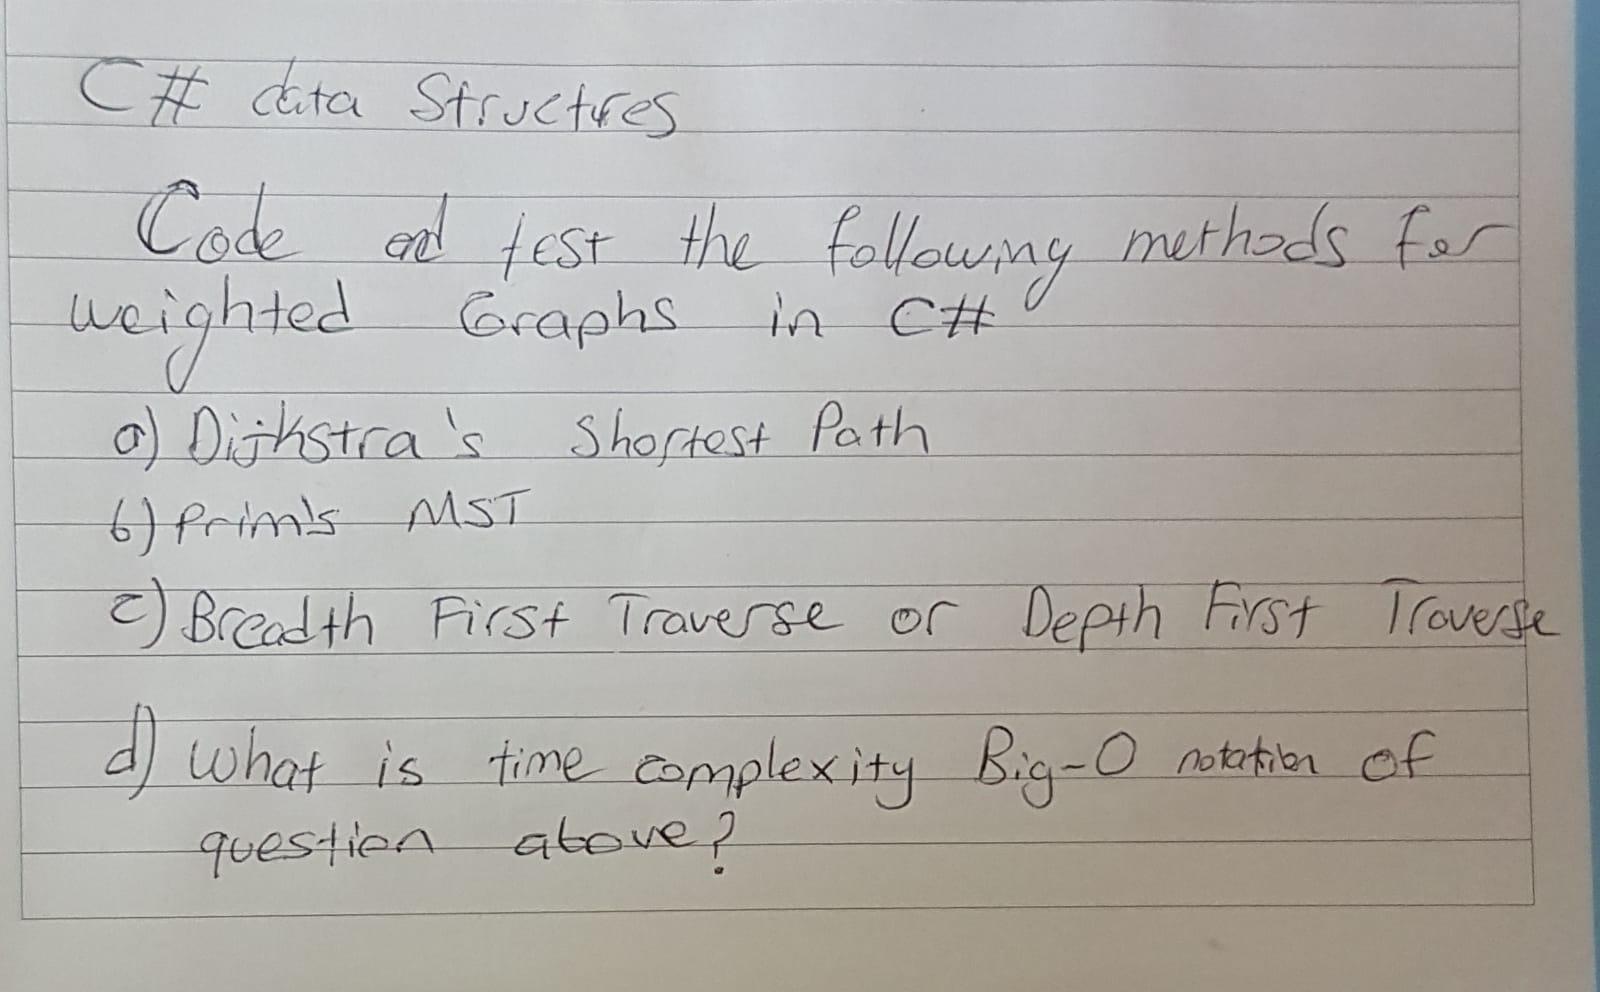 C# data Structures
Code and test the following methods for
weighted Graphs in C#
a) Dijkstra's Shortest Path
b) Prim's MST
c) Breadth First Traverse or Depth First Traverse
d) What is time complexity Big-O notation of
question above?